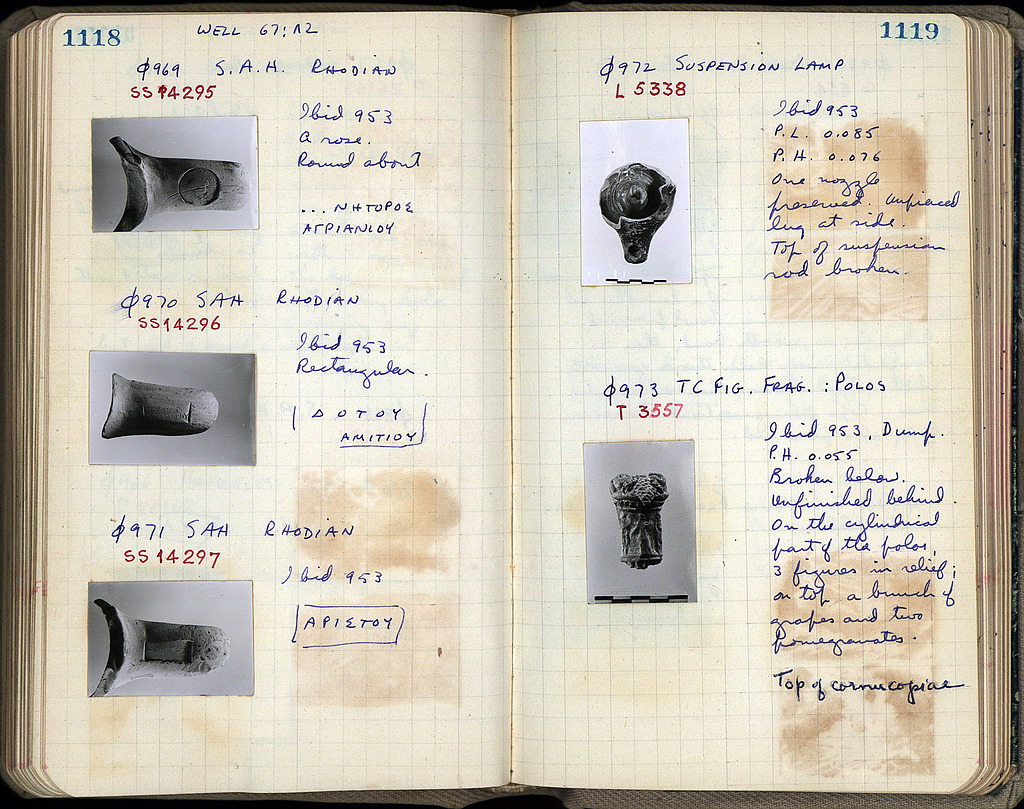 1118
WELL 67:Λ2
φ969 S.A.H. RHODIAN
SS 14295
Ibid 953
A rose.
Round about
...ΝΗΤΟΡΟΣ
ΑΓΡΙΑΝΙΟΥ
φ970 SAH RHODIAN
SS14296
Ibid 953
Rectangular.
ΔΟΤΟΥ
ΑΜΙΤΙΟΥ
φ971 SAH RHODIAN
SS 14297
Ibid 953
ΑΡΙΣΤΟΥ
1119
φ972 SUSPENSION LAMP
L 5338
Ibid 953
P.L. 0.085
P.H. 0.076
One nozzle
preserved. Unpierced
lug at side.
Top of suspension
rod broken.
φ973 TC FIG. FRAG. : POLOS
T 3557
Ibid 953, Dump.
P.H. 0.055
Broken below.
Unfinished behind.
On the cylindrical
part of the polos,
3 figures in relief;
on top a bunch of
grapes and two
pomegranates.
Top of cornucopiae